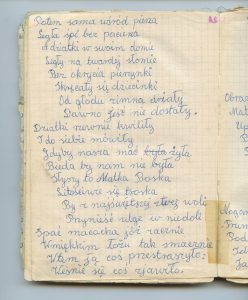 Potem sama wśród pierza
Legła spi bez pacierza
A dziatki w swoim domu
Legły na twardej słomie
Bez okrycia pierzynki
Skręcały się dziecinki
Od głodu zimna drżały
Dawno jeść nie dostały.
Dziatki rzewnie kwiliły
I do siebie mówiły
Gdyby nasza mać żyła
Bieda by nam nie była
Słyszy to Matka Boska
Litościwe się troska
By z najświętszej woli
Przynieść ulgę w niedoli
Spać macocha już zacznie
W miękkim łożu tak smacznie
Wtem ją coś przestraszyło:
Właśnie się coś zjawiło.